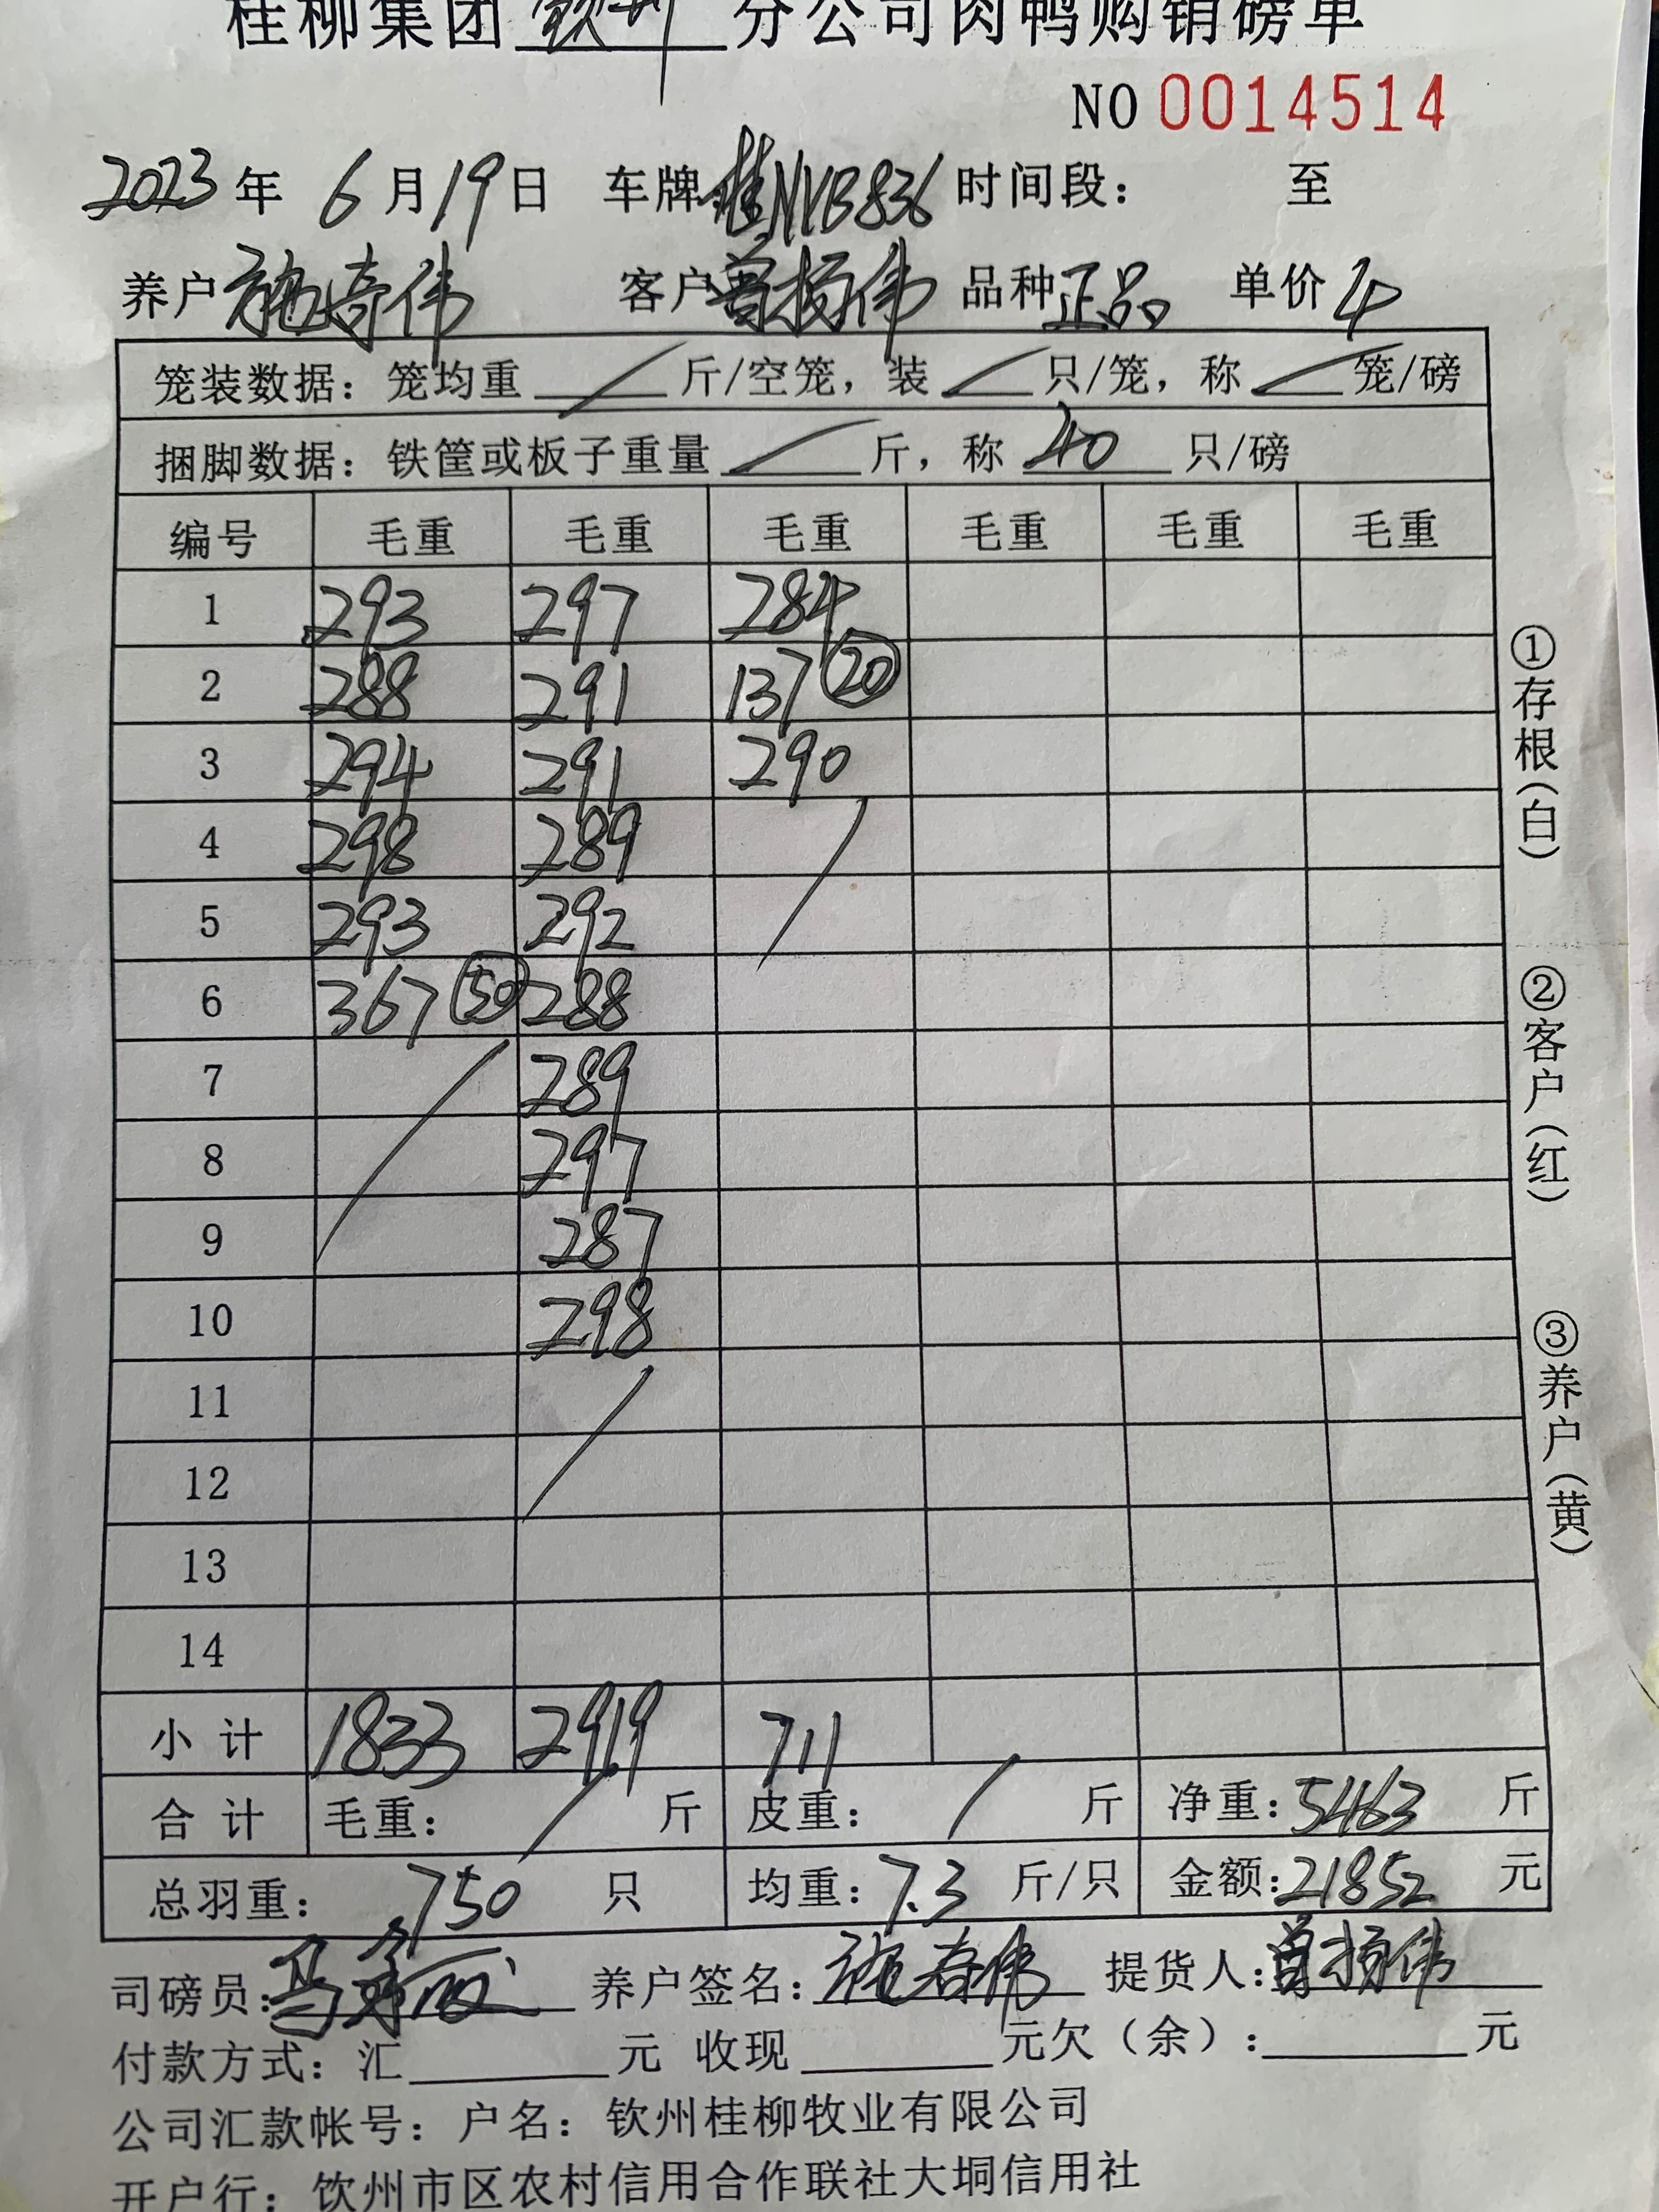 桂柳集团 钦州 分公司肉鸭购销磅单
NO 0014514
2023 年 6 月 19 日 车牌 桂NVB836 时间段： 至
养户 客户 曾扬伟 品种 正品 单价 4
笼装数据：笼均重 / 斤/空笼，装 / 只/笼，称 / 笼/磅
捆脚数据：铁筐或板子重量 / 斤，称 40 只/磅
编号 毛重 毛重 毛重 毛重 毛重 毛重
1 293 297 284
2 288 291 137 ⑳
3 294 291 290
4 298 289
5 293 292
6 367 ㊿ 288
7 289
8 297
9 287
10 298
11
12
13
14
小计 1833 2919 711
合计 毛重： / 斤 皮重： / 斤 净重：5463 斤
总羽重： 750 只 均重：7.3 斤/只 金额：21852 元
司磅员： 养户签名： 提货人：曾扬伟
付款方式：汇 元 收现 元欠（余）： 元
公司汇款帐号：户名：钦州桂柳牧业有限公司
开户行：钦州市区农村信用合作联社大垌信用社
①存根（白）
②客户（红）
③养户（黄）